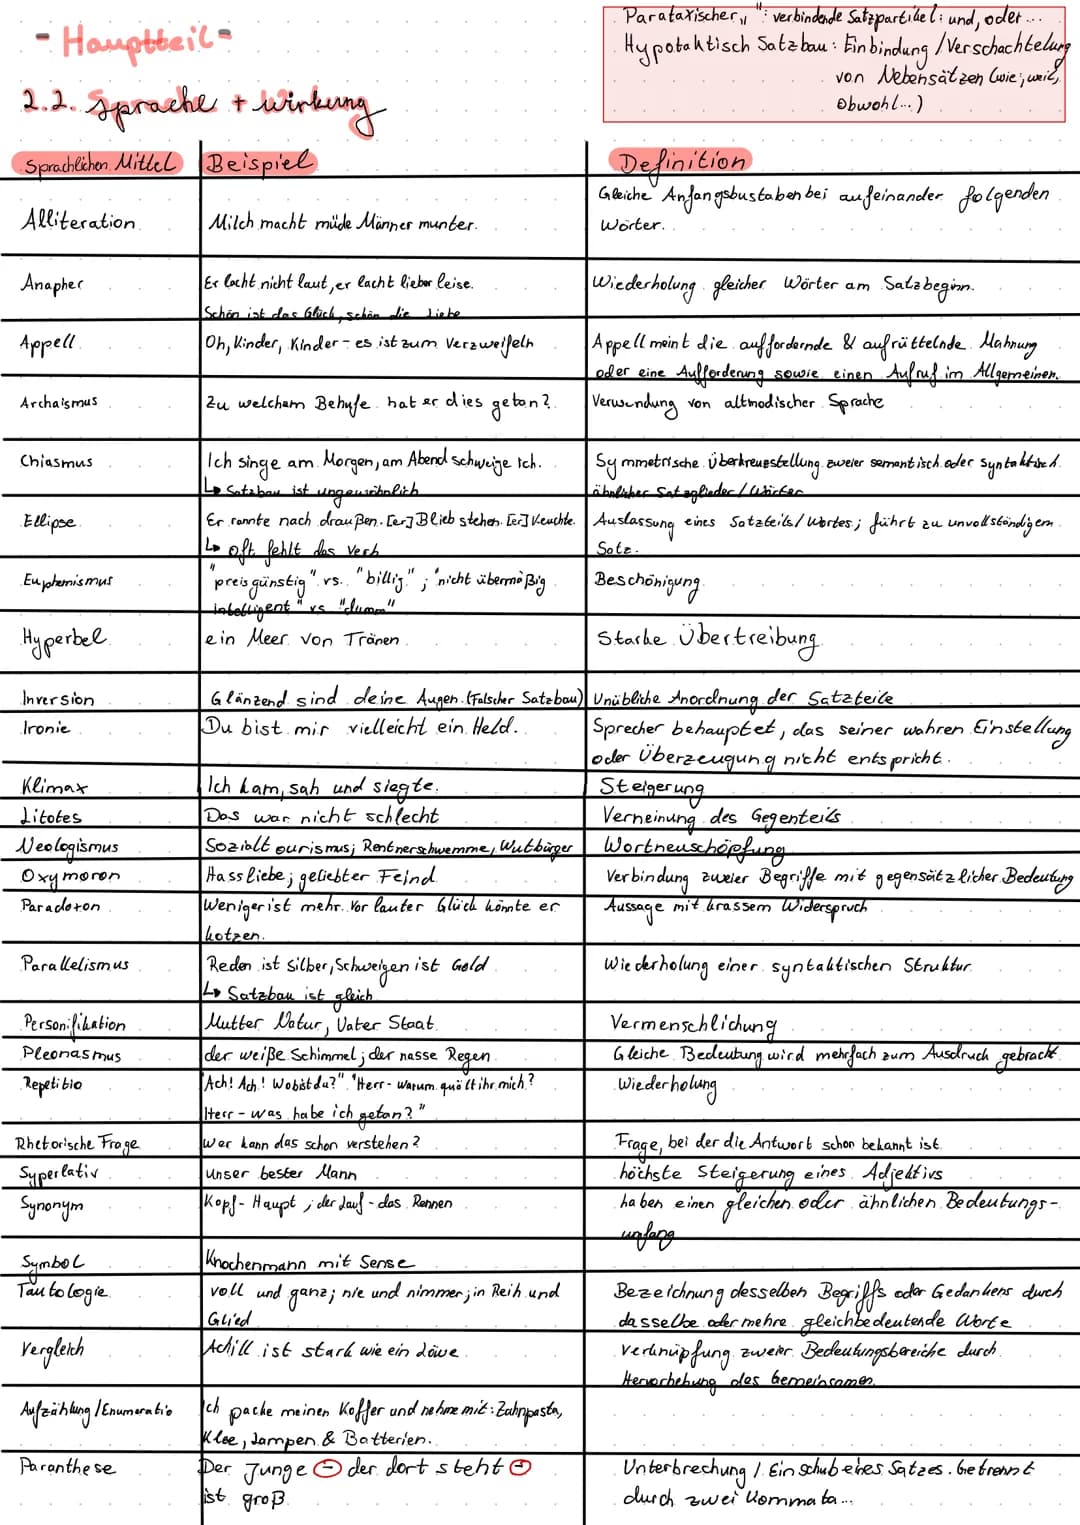 Parataxischer „ ": verbindende Satzpartikel: und, oder ...
- Hauptteil -
Hypotaktisch Satzbau: Einbindung / Verschachtelung
von Nebensätzen (wie, weil,
obwohl...)
2.2. Sprache + Wirkung
Sprachlichen Mittel Beispiel Definition
Gleiche Anfangsbustaben bei aufeinander folgenden
Alliteration Milch macht müde Männer munter. Wörter.
Anapher Er lacht nicht laut, er lacht lieber leise. Wiederholung gleicher Wörter am Satzbeginn.
Schön ist das Glück, schön die Liebe
Appell Oh, Kinder, Kinder - es ist zum Verzweifeln Appell meint die auffordernde & aufrüttelnde Mahnung
oder eine Aufforderung sowie einen Aufruf im Allgemeinen.
Archaismus Zu welchem Behufe hat er dies getan? Verwendung von altmodischer Sprache
Chiasmus Ich singe am Morgen, am Abend schweige Ich. Symmetrische Überkreuzstellung zweier semantisch oder syntaktisch
↳ Satzbau ist ungewöhnlich ähnlicher Satzglieder / Wörter
Ellipse Er rannte nach draußen. [er] Blieb stehen. [er] Keuchte. Auslassung eines Satzteils / Wortes; führt zu unvollständigem
↳ oft fehlt das Verb Satz.
Euphemismus "preisgünstig" vs. "billig"; "nicht übermäßig Beschönigung
intelligent" vs "dumm"
Hyperbel ein Meer von Tränen Starke Übertreibung
Inversion Glänzend sind deine Augen. (Falscher Satzbau) Unübliche Anordnung der Satzteile
Ironie Du bist mir vielleicht ein Held. Sprecher behauptet, das seiner wahren Einstellung
oder Überzeugung nicht entspricht.
Klimax Ich kam, sah und siegte. Steigerung
Litotes Das war nicht schlecht Verneinung des Gegenteils
Neologismus Sozialtourismus; Rentnerschwemme, Wutbürger Wortneuschöpfung
Oxymoron Hassliebe; geliebter Feind Verbindung zweier Begriffe mit gegensätzlicher Bedeutung
Paradoxon Weniger ist mehr. Vor lauter Glück könnte er Aussage mit krassem Widerspruch
kotzen.
Parallelismus Reden ist Silber, Schweigen ist Gold Wiederholung einer syntaktischen Struktur
↳ Satzbau ist gleich
Personifikation Mutter Natur, Vater Staat Vermenschlichung
Pleonasmus der weiße Schimmel; der nasse Regen Gleiche Bedeutung wird mehrfach zum Ausdruck gebracht
Repetitio "Ach! Ach! Wo bist du?" "Herr - warum quält ihr mich? Wiederholung
Herr - was habe ich getan?"
Rhetorische Frage Wer kann das schon verstehen? Frage, bei der die Antwort schon bekannt ist
Superlativ unser bester Mann höchste Steigerung eines Adjektivs
Synonym Kopf - Haupt; der Lauf - das Rennen haben einen gleichen oder ähnlichen Bedeutungs-
umfang
Symbol Knochenmann mit Sense
Tautologie voll und ganz; nie und nimmer; in Reih und Bezeichnung desselben Begriffs oder Gedankens durch
Glied dasselbe oder mehre gleichbedeutende Worte
Vergleich Achill ist stark wie ein Löwe Verknüpfung zweier Bedeutungsbereiche durch
Hervorhebung des Gemeinsamen.
Aufzählung / Enumeratio Ich packe meinen Koffer und nehme mit: Zahnpasta,
Klee, Lampen & Batterien.
Paranthese Der Junge - der dort steht - Unterbrechung / Einschub eines Satzes. Getrennt
ist groß durch zwei Kommata...